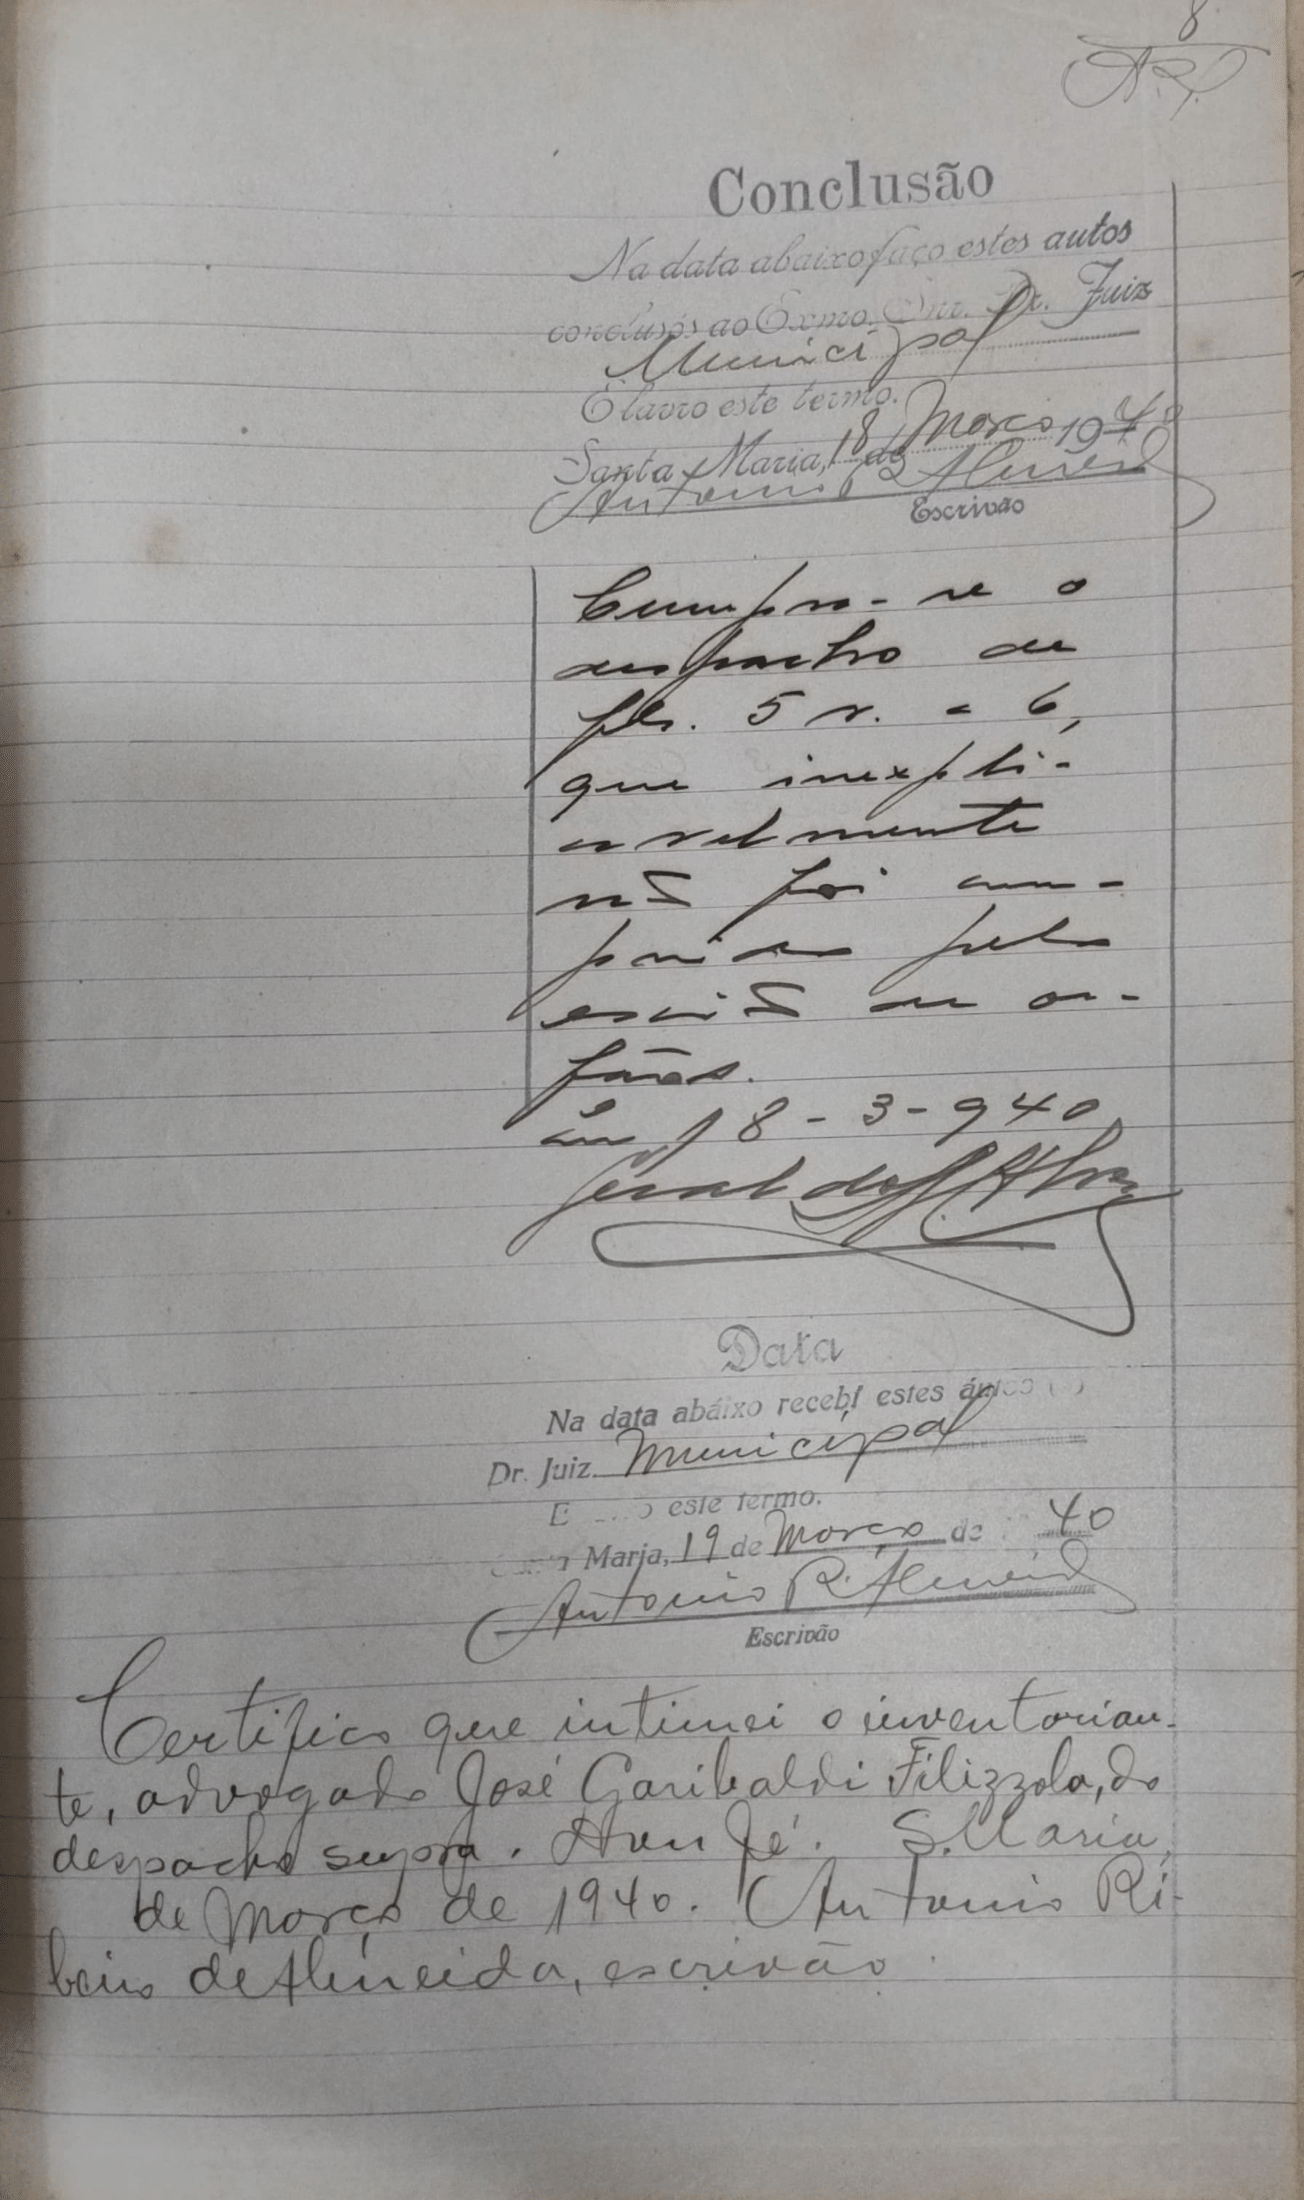 8
A.R.
Conclusão
Na data abaixo faço estes autos
conclusos ao Exmo. Snr. Dr. Juiz
Municipal
E lavro este termo.
Santa Maria, 18 de Março 1940
Antonio R Almeida
Escrivão
Cumpra-se o
despacho de
fls. 5 v. a 6,
que inexpli-
cavelmente
não foi cum-
prido pelo
escrivão de or-
fãos.
Em 18-3-940
Data
Na data abáixo recebi estes áutos
Dr. Juiz Municipal
E este termo.
Maria, 19 de Março de 40
Antonio R. Almeida
Escrivão
Certifico que intimei o inventarian-
te, advogado José Garibaldi Filizzola, do
despacho supra. Dou fé. S. Maria,
de Março de 1940. Antonio Ri-
beiro de Almeida, escrivão